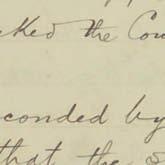 cked the Cou
econded by
that the s